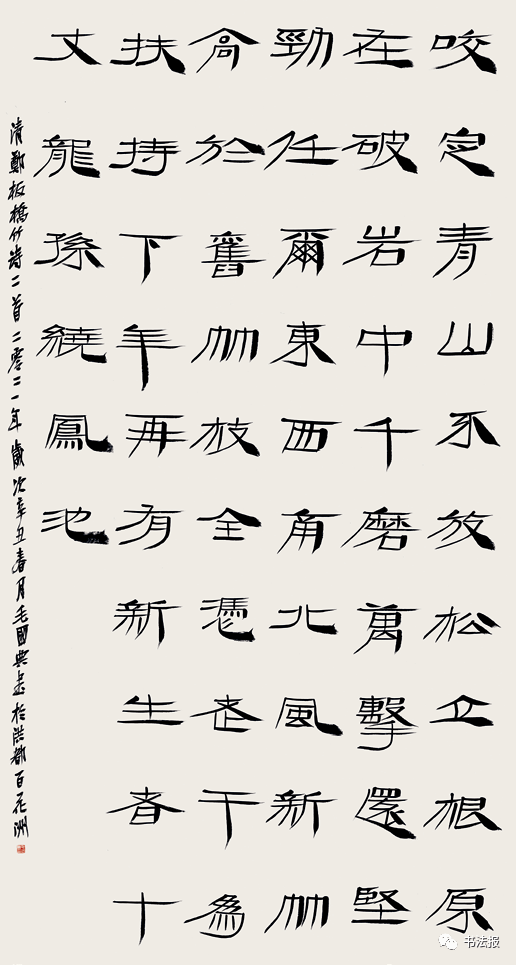 咬定青山不放松立根原
在破岩中千磨萬擊還堅
勁任爾東西角北風新竹
高於舊竹枝全憑老干為
扶持下年再有新生者十
丈龍孫繞鳳池
清鄭板橋竹诗二首二零二一年歲次辛丑春月毛國典書於洪都百花洲
书法报